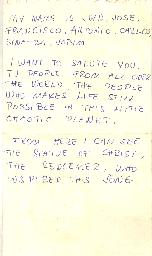 MY NAME IS JOSE,
FRANCISCO, ANTONIO, CARLOS,
I WANT TO SALUTE YOU,
PEOPLE FROM ALL OVER
THE WORLD THE PEOPLE
WHO MAKES LIFE STILL
POSSIBLE IN THIS LITTLE
CHAOTIC PLANET.
FROM HERE I CAN SEE
THE STATUE OF CHRIST,
THE REDEEMER, WHO
INSPIRED THIS SONG